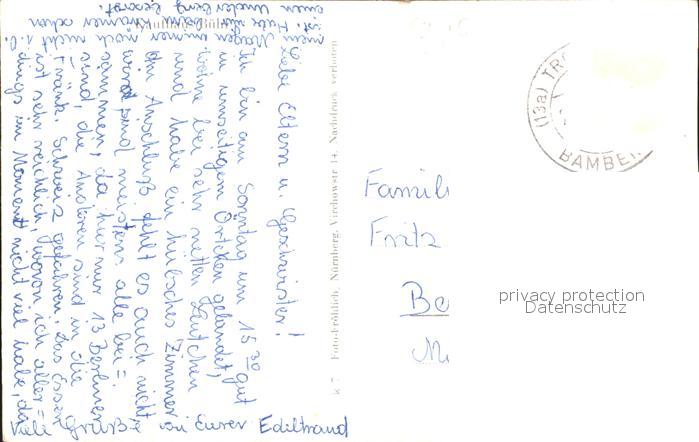 Liebe Eltern u. Geschwister!
Ich bin am Sonntag um 15³⁰ gut
in unseitigem Örtchen gelandet,
wohne bei sehr netten Leutchen
und habe ein hübsches Zimmer
Am Anschluß fehlt es auch nicht
wir sind meistens alle bei=
sammen, da hier nur 13 Berliner
sind, die Anderen sind in die
Fränk. Schweiz gefahren. Das Essen
ist sehr reichlich, wovon ich aller=
dings im Moment nicht viel habe, da
mein Magen immer noch nicht i.O.
ist. Habe mir schon
einen Underberg besorgt.
Viele Grüße von Eurer Edeltraud
k 7 Foto-Fröhlich, Nürnberg, Virchowstr 14. Nachdruck verboten
(13a) TR
BAMBE
Famili
Fritz
Be
privacy protection
Datenschutz